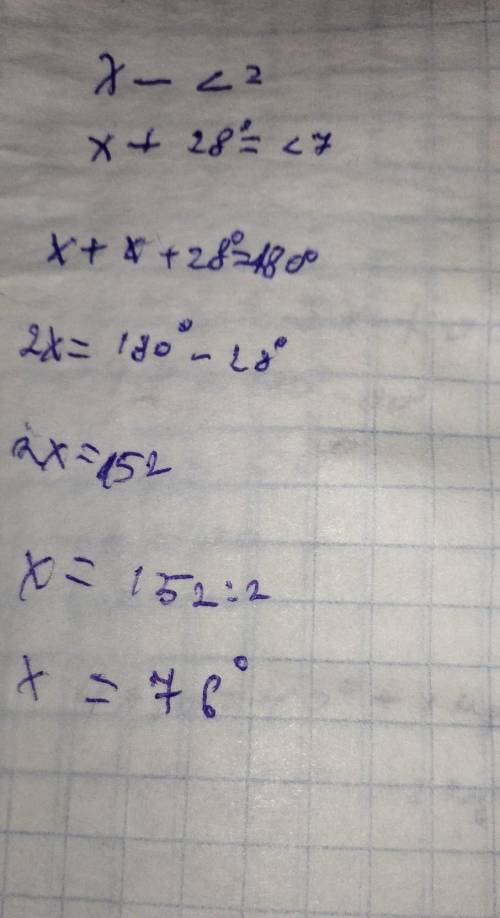 x – < 2
x + 28° = < 7
x + x + 28° = 180°
2x = 180° - 28°
2x = 152
x = 152 : 2
x = 76°